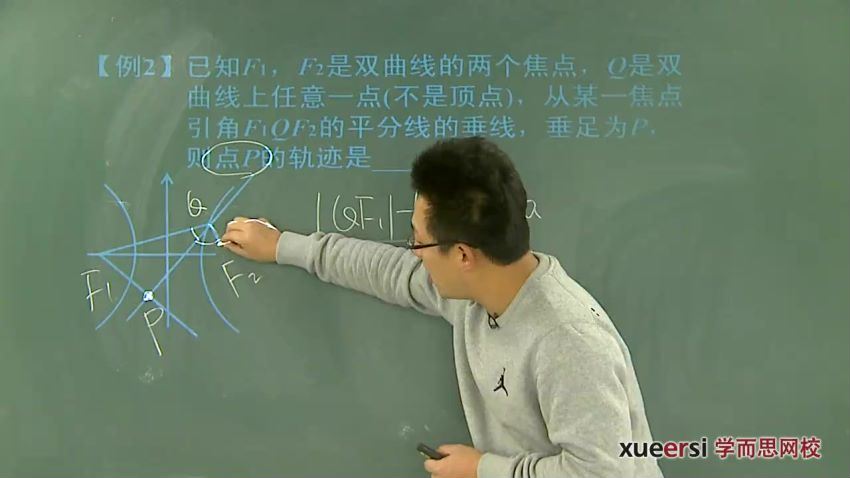 【例2】已知F₁，F₂是双曲线的两个焦点，Q是双
曲线上任意一点(不是顶点)，从某一焦点
引角F₁QF₂的平分线的垂线，垂足为P，
则点P的轨迹是____
Q
|QF₁|-
a
F₁
F₂
P
xueersi 学而思网校